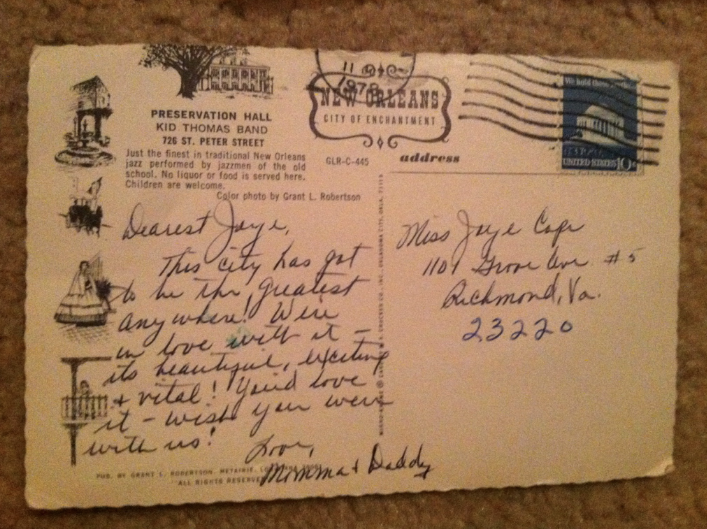 PRESERVATION HALL
KID THOMAS BAND
726 ST. PETER STREET
Just the finest in traditional New Orleans
jazz performed by jazzmen of the old
school. No liquor or food is served here.
Children are welcome.
Color photo by Grant L. Robertson
11
1978
NEW ORLEANS
CITY OF ENCHANTMENT
GLR-C-445
address
UNITED STATES 10c
Dearest Joye,
This city has got
to be the greatest
anywhere! We're
in love with it -
its beautiful, exciting
& vital! You'd love
it - wish you were
with us!
Love,
Momma & Daddy
Miss Joye Cope
1101 Grove Ave #5
Richmond, Va.
23220
PUB. BY GRANT L. ROBERTSON - METAIRIE,
ALL RIGHTS RESERVED